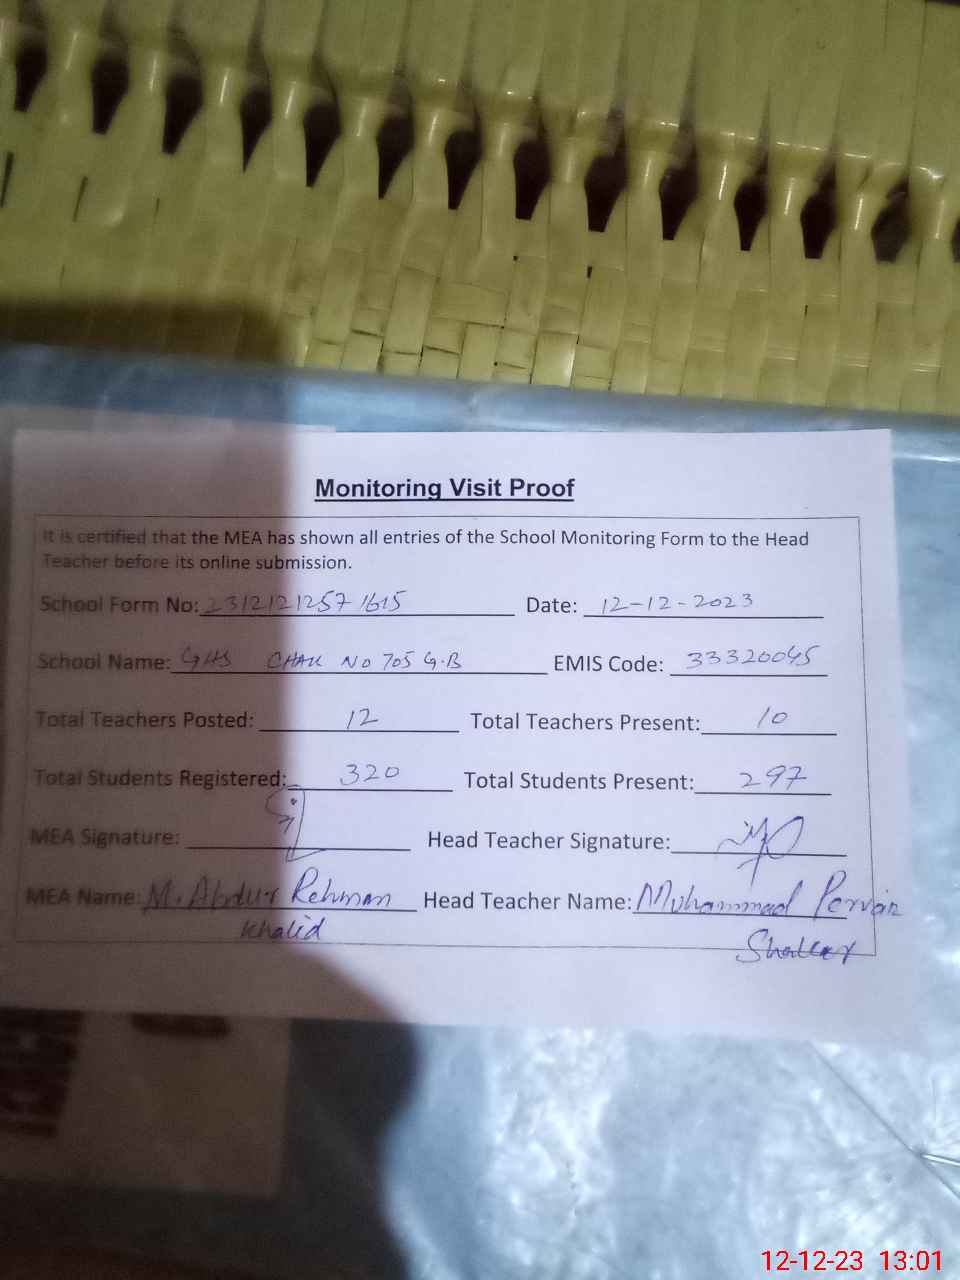 Monitoring Visit Proof
It is certified that the MEA has shown all entries of the School Monitoring Form to the Head
Teacher before its online submission.
School Form No: 23121212571615 Date: 12-12-2023
School Name: GHS CHAK NO 705 G.B EMIS Code: 33320045
Total Teachers Posted: 12 Total Teachers Present: 10
Total Students Registered: 320 Total Students Present: 297
MEA Signature: Head Teacher Signature:
MEA Name: M. Abdur Rehman Head Teacher Name: Muhammad Pervaiz
Khalid
12-12-23 13:01